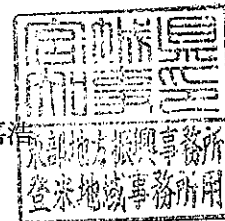 浩
宮城県
知事印
東部地方振興事務所
登米地域事務所用